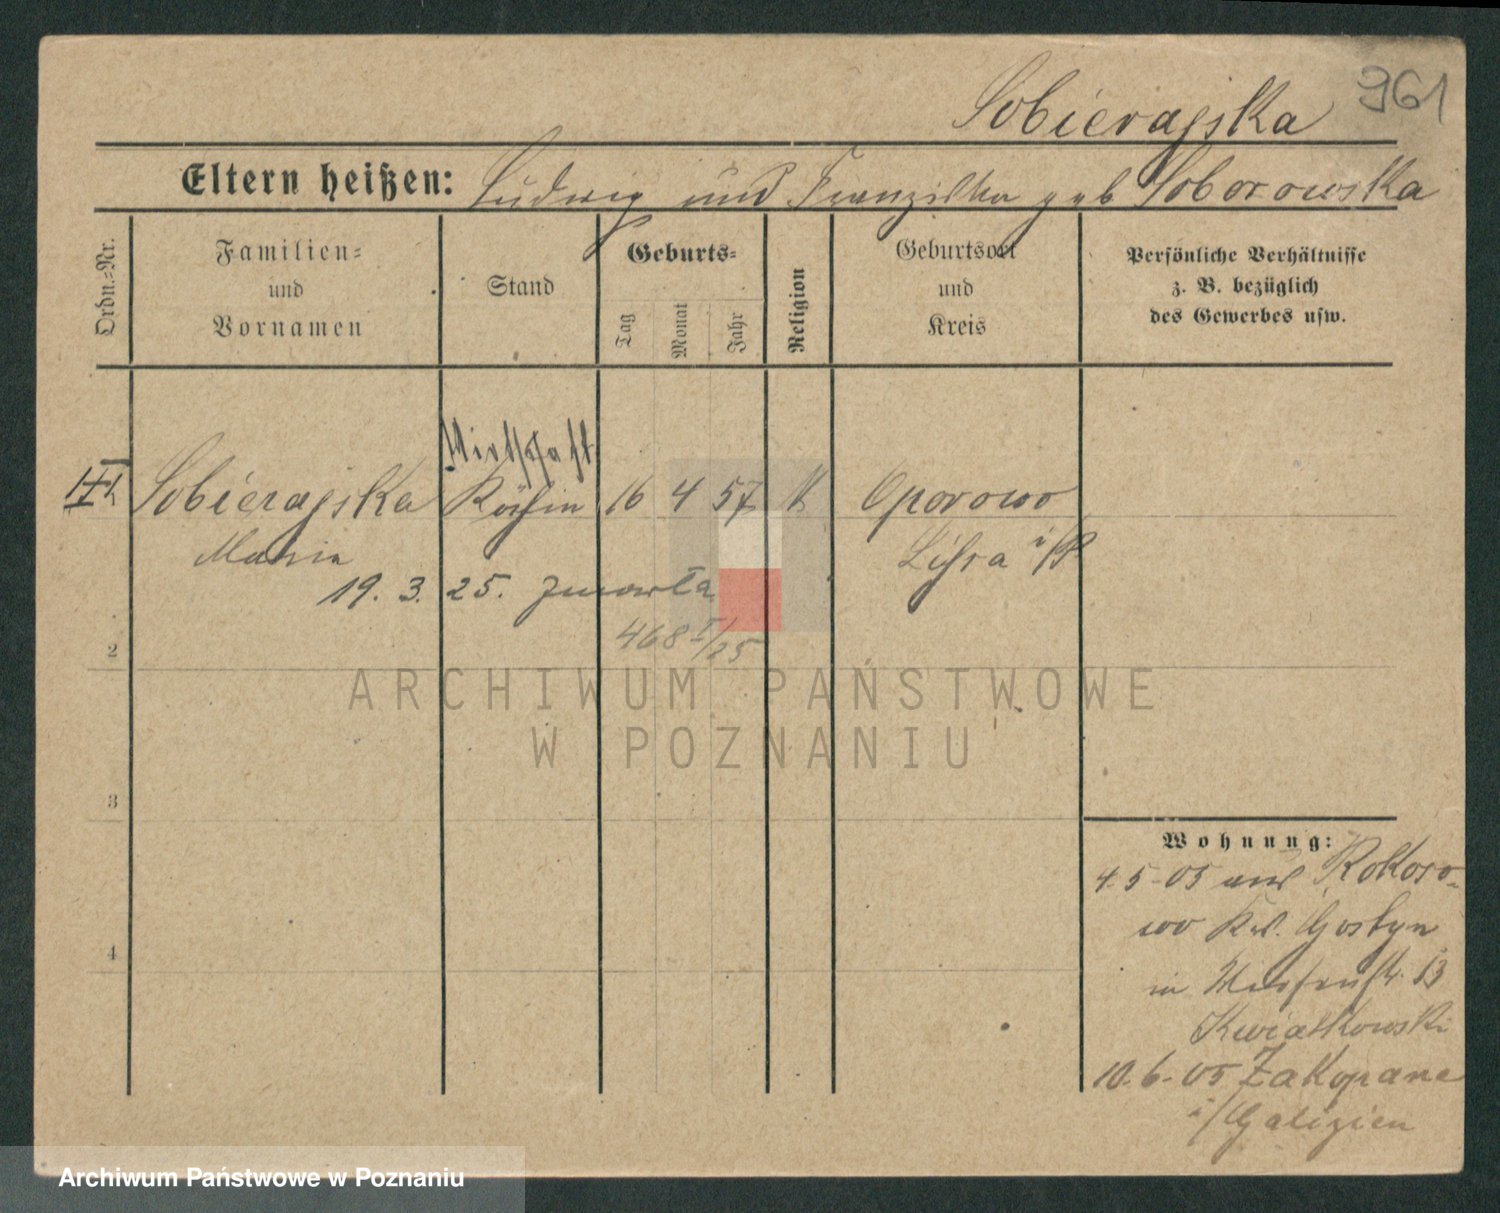 961
Sobierajska
Eltern heißen: Ludwig und Franziska geb Soborowska
Ordn.=Nr.
Familien=
und
Vornamen
Stand
Geburts=
Tag
Monat
Jahr
Religion
Geburtsort
und
Kreis
Persönliche Verhältnisse
z. B. bezüglich
des Gewerbes usw.
Wirtschaft
Sobierajska Köchin 16 4 57 K Oporowo
Maria Lissa i/P
19. 3. 25. zmarła
468 I/25
2
ARCHIWUM PAŃSTWOWE
W POZNANIU
3
4
Wohnung:
4.5-05 aus Rokoso-
wo Kr. Gostyn
in 13
Kwiatkowski
10.6.05 Zakopane
i/Galizien
Archiwum Państwowe w Poznaniu